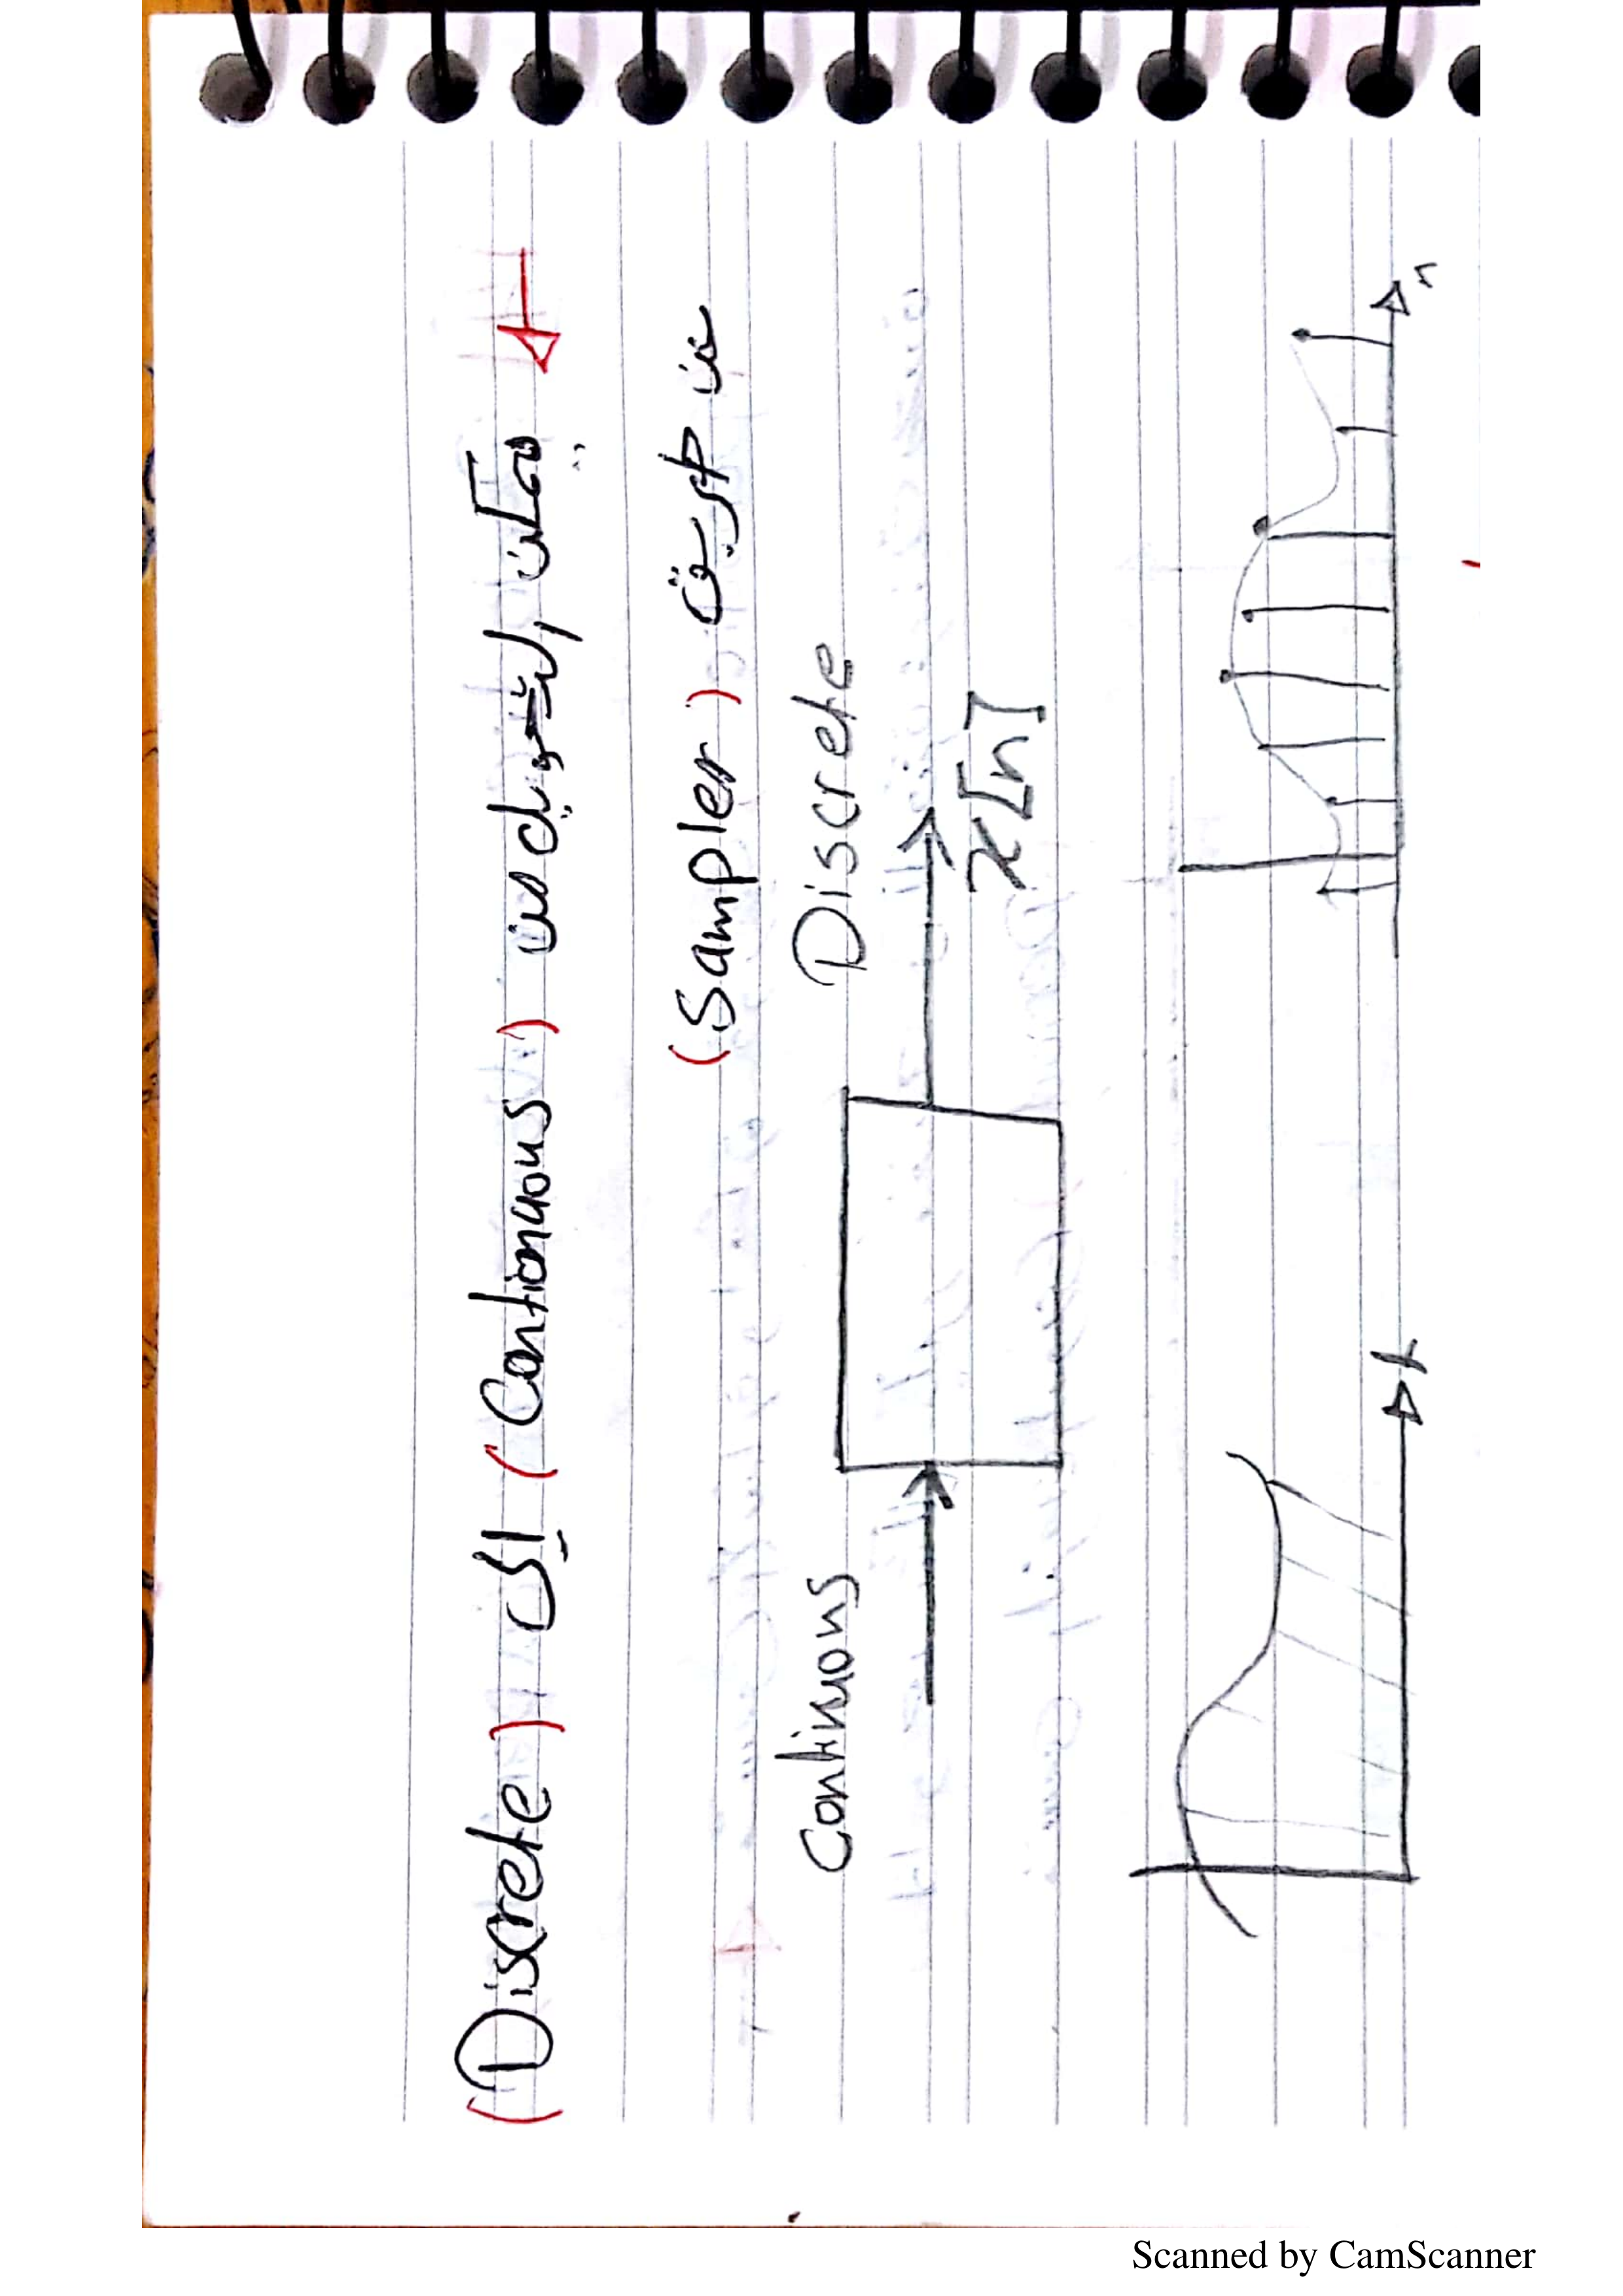 يمكن التحويل من (Continuous) الى (Discrete)
عن طريق (Sampler)
Continuous
Discrete
x[n]
t
n
Scanned by CamScanner